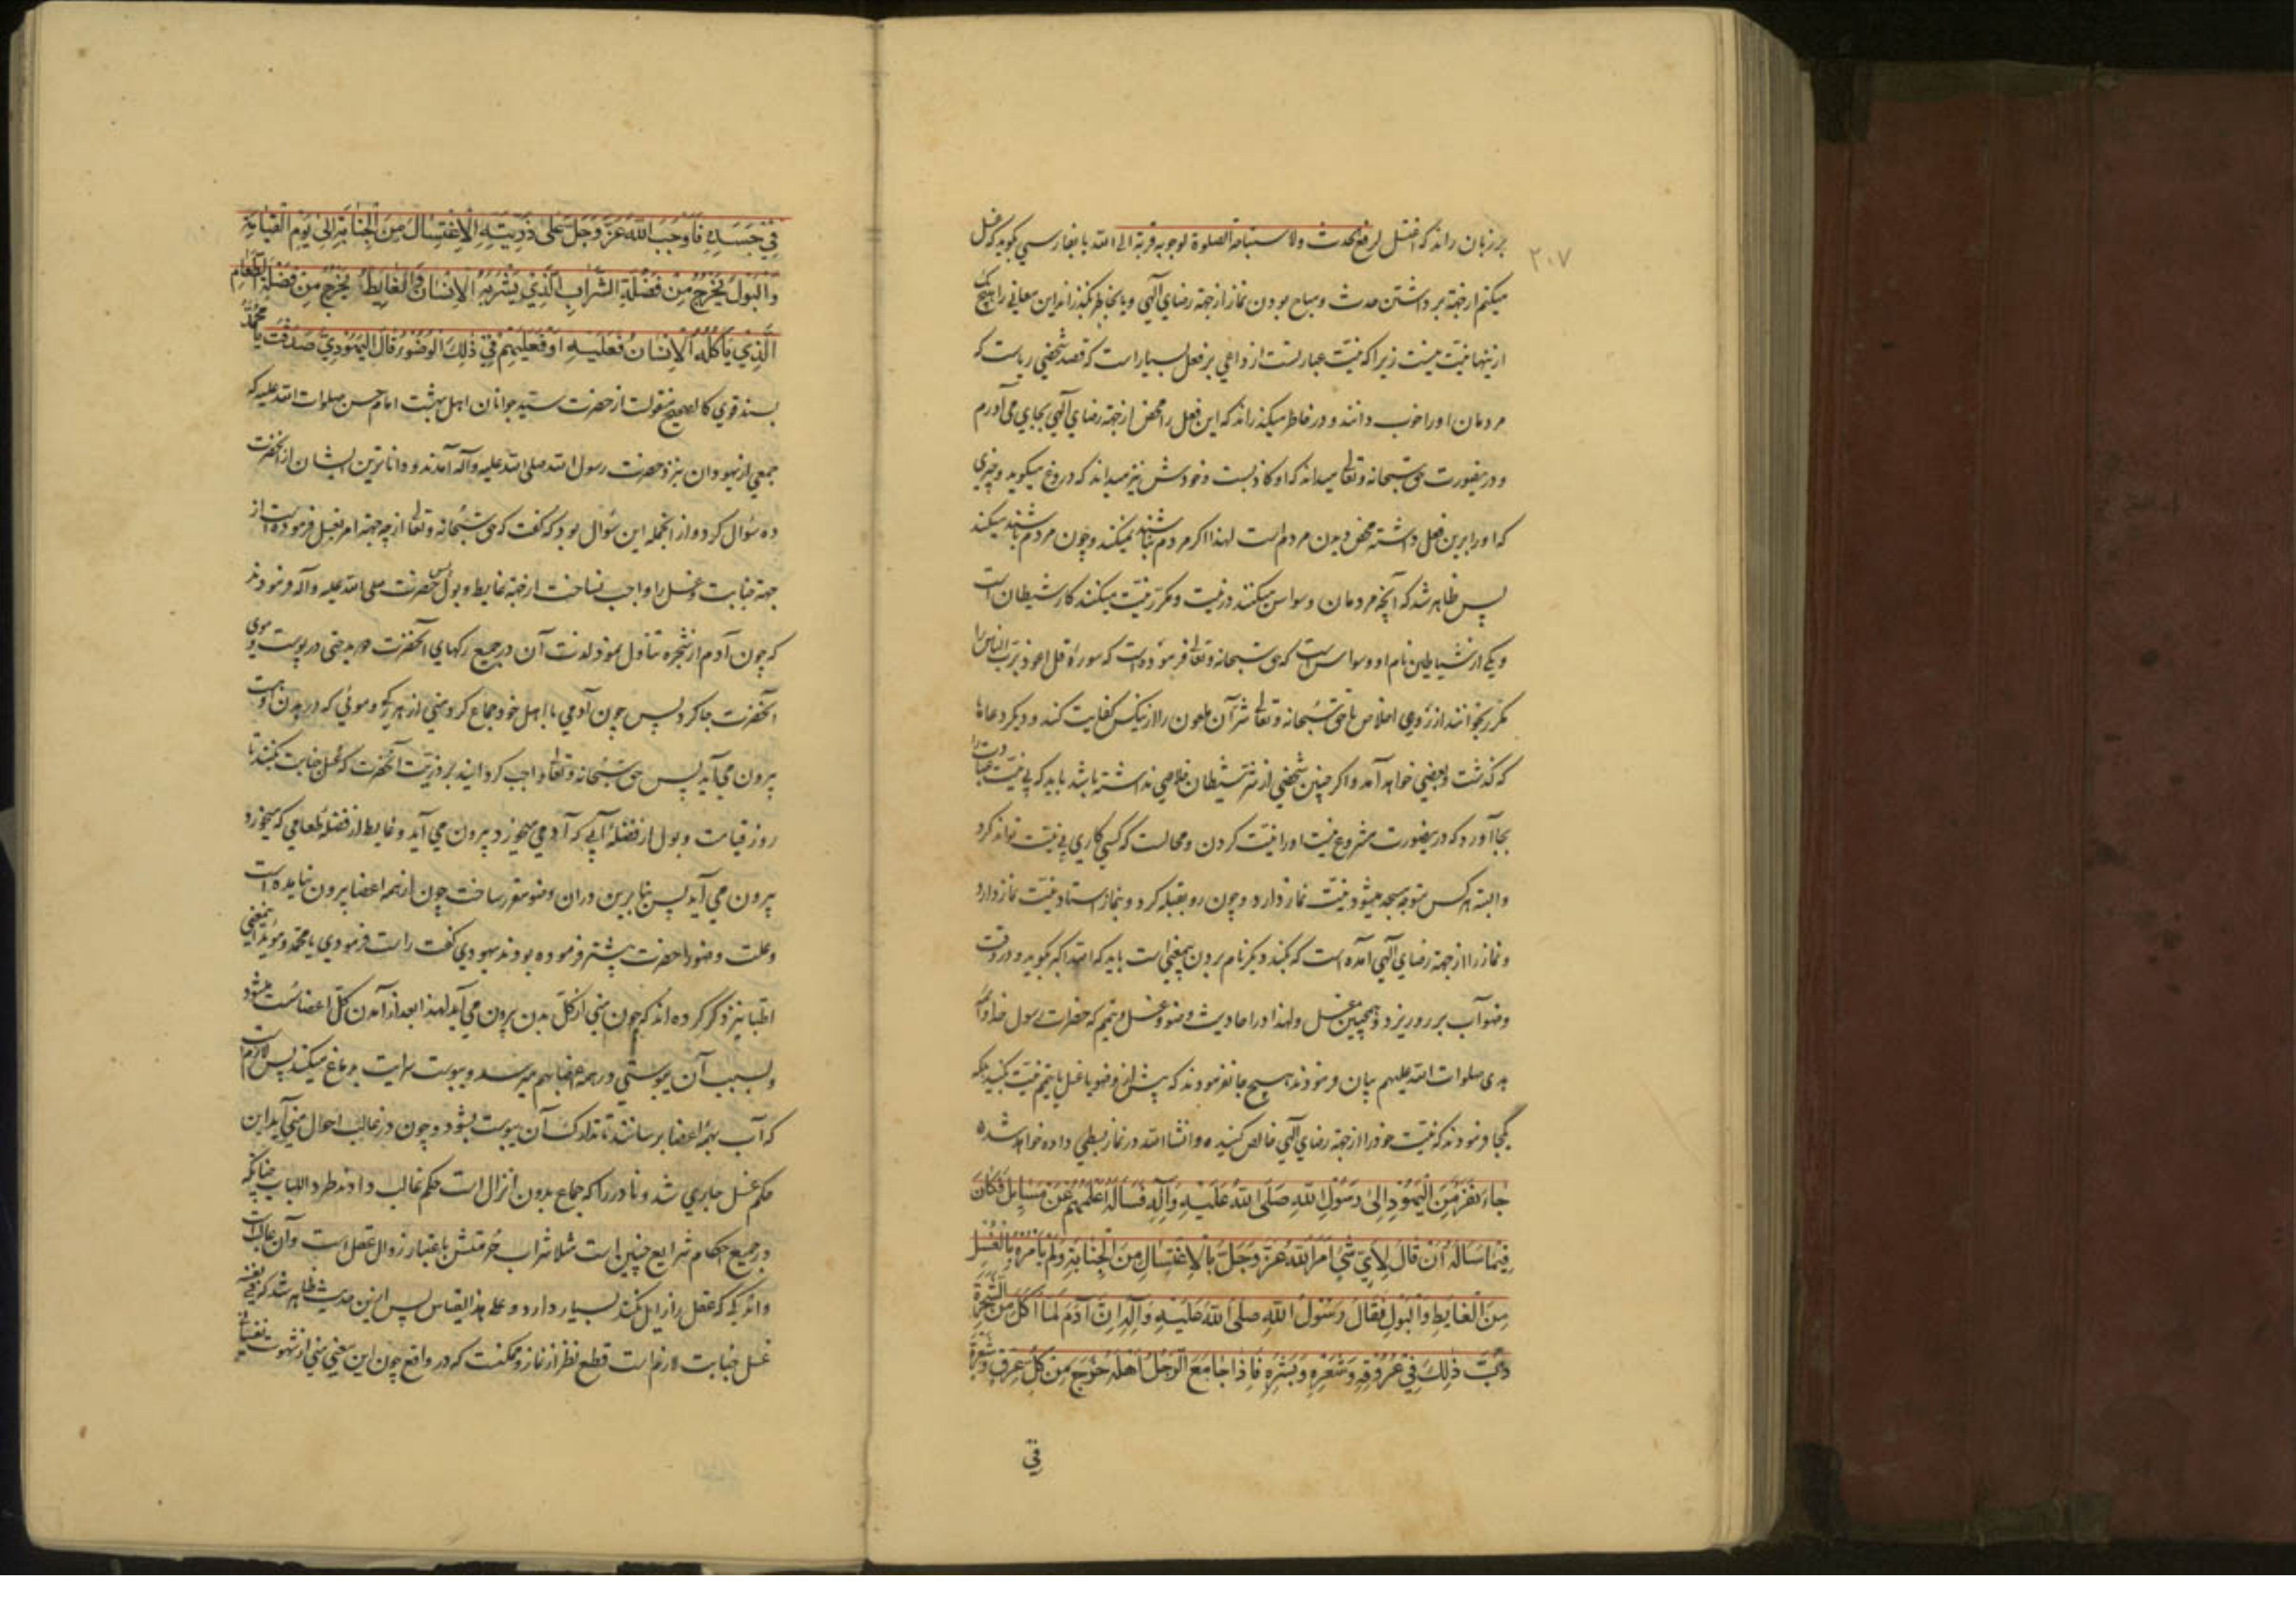 بر زبان راند که اغتسل لرفع الحدث ولاستباحة الصلوة لوجوبه قربة الی الله یا بفارسی بگوید که غسل
۲۰۷
میکنم از جهة برداشتن حدث و مباح بودن نماز از جهة رضای آلهی و یا بخاطر بگذراند این معانی را هیچ یک
ازینها نیّت نیست زیرا که نیّت عبارتست از داعی بر فعل بسیار است که قصد شخصی ریاست که
مردمان او را خوب دانند و در خاطر میگذراند که این فعل را محض از جهة رضای آلهی بجای می آورم
و درینصورت حق سبحانه وتعالی میداند که او کاذبست و خودش نیز میداند که دروغ میگوید و چیزی
که او را برین فعل داشته محض دیدن مردم است لهذا اکر مردم نباشند نمیکند و چون مردم باشند میکند
پس ظاهر شد که آنچه مردمان وسواس میکنند در نیّت و مکرّر نیّت میکنند کار شیطان است
و یکی از شیاطین نام او وسواس است که حق سبحانه وتعالی فرموده است که سورهٔ قل اعوذ بربّ الناس را
مکرر بخوانند از روی اخلاص تا حق سبحانه وتعالی شرّ آن ملعون را از یکس کفایت کند و دیگر دعاها
که گذشت و بعضی خواهد آمد و اکر چنین شخصی از شرّ شیطان خلاصی نداشته باشد باید که بی نیّت عبادت را
بجا آورد که درینصورت مشروع نیست او را نیّت کردن و محالست که کسی کاری بی نیّت تواند کرد
و البته هر کس متوجه مسجد میشود نیّت نماز دارد و چون رو بقبله کرد و بنماز استاد نیّت نماز دارد
و نماز را از جهة رضای آلهی آمده است که بکند دیگر نام بردن بیمعنی است باید که الله اکبر بگوید و در وقت
وضو آب بر رو ریزد و همچنین غسل و لهذا در احادیث وضو و غسل و تیمم که حضرت رسول خدا و ائمه
هدی صلوات الله علیهم بیان فرمودند هیچ جا نفرمودند که پیش از وضو یا غسل یا تیمم نیّت بکنید بلکه
یکجا فرمودند که نیّت خود را از جهة رضای آلهی خالص کنید و انشاالله در نماز بسطی داده خواهد شد
جٰاءَ نَفَرٌ مِنَ الْیَهُوْدِ اِلیٰ رَسُوْلِ اللهِ صَلَّی اللهُ عَلَیْهِ وَاٰلِهِ فَسَاَلَهُ اَعْلَمُهُمْ عَنْ مَسٰایِلَ فَکٰانَ
فِیْمٰا سَاَلَهُ اَنْ قٰالَ لِاَیِّ شَئٍ اَمَرَ اللهُ عَزَّ وَجَلَّ بِالْاِغْتِسٰالِ مِنَ الْجَنٰابَةِ وَلَمْ یَاْمُرْ بِالْغُسْلِ
مِنَ الْغٰایِطِ وَالْبَوْلِ فَقٰالَ رَسُوْلُ اللهِ صلی اللهُ عَلَیْهِ وَاٰلِهِ اِنَّ اٰدَمَ لَمّٰا اَکَلَ مِنَ الشَّجَرَةِ
دَبَّ ذٰلِکَ فِیْ عُرُوْقِهِ وَشَعْرِهِ وَبَشَرِهِ فَاِذٰا جٰامَعَ الرَّجُلُ اَهْلَهُ خَرَجَ مِنْ کُلِّ عِرْقٍ وَشَعْرَةٍ
فی
فِیْ جَسَدِهِ فَاَوْجَبَ اللهُ عَزَّ وَجَلَّ عَلیٰ ذُرِّیَّتِهِ الْاِغْتِسٰالَ مِنَ الْجَنٰابَةِ اِلیٰ یَوْمِ الْقِیٰامَةِ
وَالْبَوْلُ یَخْرُجُ مِنْ فَضْلَةِ الشَّرٰابِ الَّذِیْ یَشْرَبُهُ الْاِنْسٰانُ وَالْغٰایِطُ یَخْرُجُ مِنْ فَضْلَةِ الطَّعٰامِ
الَّذِیْ یَاْکُلُهُ الْاِنْسٰانُ فَعَلَیْهِ اَوْ فَعَلَیْهِمْ فِیْ ذٰلِکَ الْوُضُوْءُ قٰالَ الْیَهُوْدِیُّ صَدَقْتَ یٰا مُحَمَّدُ
بسند قوی کالصحیح منقولست از حضرت سیّد جوانان اهل بهشت امام حسن صلوات الله علیه که
جمعی از یهودان بنزد حضرت رسول الله صلی الله علیه وآله آمدند و داناترین ایشان از آنحضرت
ده سؤال کرد و از آنجمله این سؤال بود که گفت که حق سبحانه وتعالی از چه جهة امر بغسل فرموده است از
جهة جنابت و غسل را واجب نساخت از جهة غایط و بول پس حضرت صلی الله علیه وآله فرمودند
که چون آدم از شجره تناول نمود لذت آن در جمیع رکهای آنحضرت دوید حتی در پوست و موی
آنحضرت جا کرد پس چون آدمی با اهل خود جماع کرد منی از هر رگ و موئی که در بدن اوست
بیرون می آید پس حق سبحانه وتعالی واجب کردانید بر ذریّت آنحضرت که غسل جنابت بکنند تا
روز قیامت و بول از فضلهٔ آبی که آدمی میخورد بیرون می آید و غایط از فضله طعامی که میخورد
بیرون می آید پس بنابرین در آن وضو مقرر ساخت چون از همه اعضا بیرون نیامده است
و علت وضو را حضرت پیشتر فرموده بودند یهودی گفت راست فرمودی یا محمد و مؤید اینمعنی
اطبا نیز ذکر کرده اند که چون منی از کلّ بدن بیرون می آید لهذا بعد از آمدن کلّ اعضا سُست میشود
و بسبب آن یبوستی در همه اعضا بهم میرسد و یبوست سرایت بدماغ میکند پس لازم است
که آب بهمه اعضا برسانند تا تدارک آن یبوست بشود و چون در غالب احوال منی آید این
حکم غسل جاری شد و نادر را که جماع بدون انزال است حکم غالب دادند طرد اللباب چنانکه
در جمیع احکام شرایع چنین است مثلا شراب حُرمتش باعتبار زوال عقل است و آن غالب است
و اندکی که عقل را زایل نکند بسیار دارد و علی هذا القیاس پس ازین حدیث ظاهر شد که فی نفسه
غسل جنابت لازم است قطع نظر از نماز و ممکنست که در واقع چون این معنی منی از شهوت نفسانی